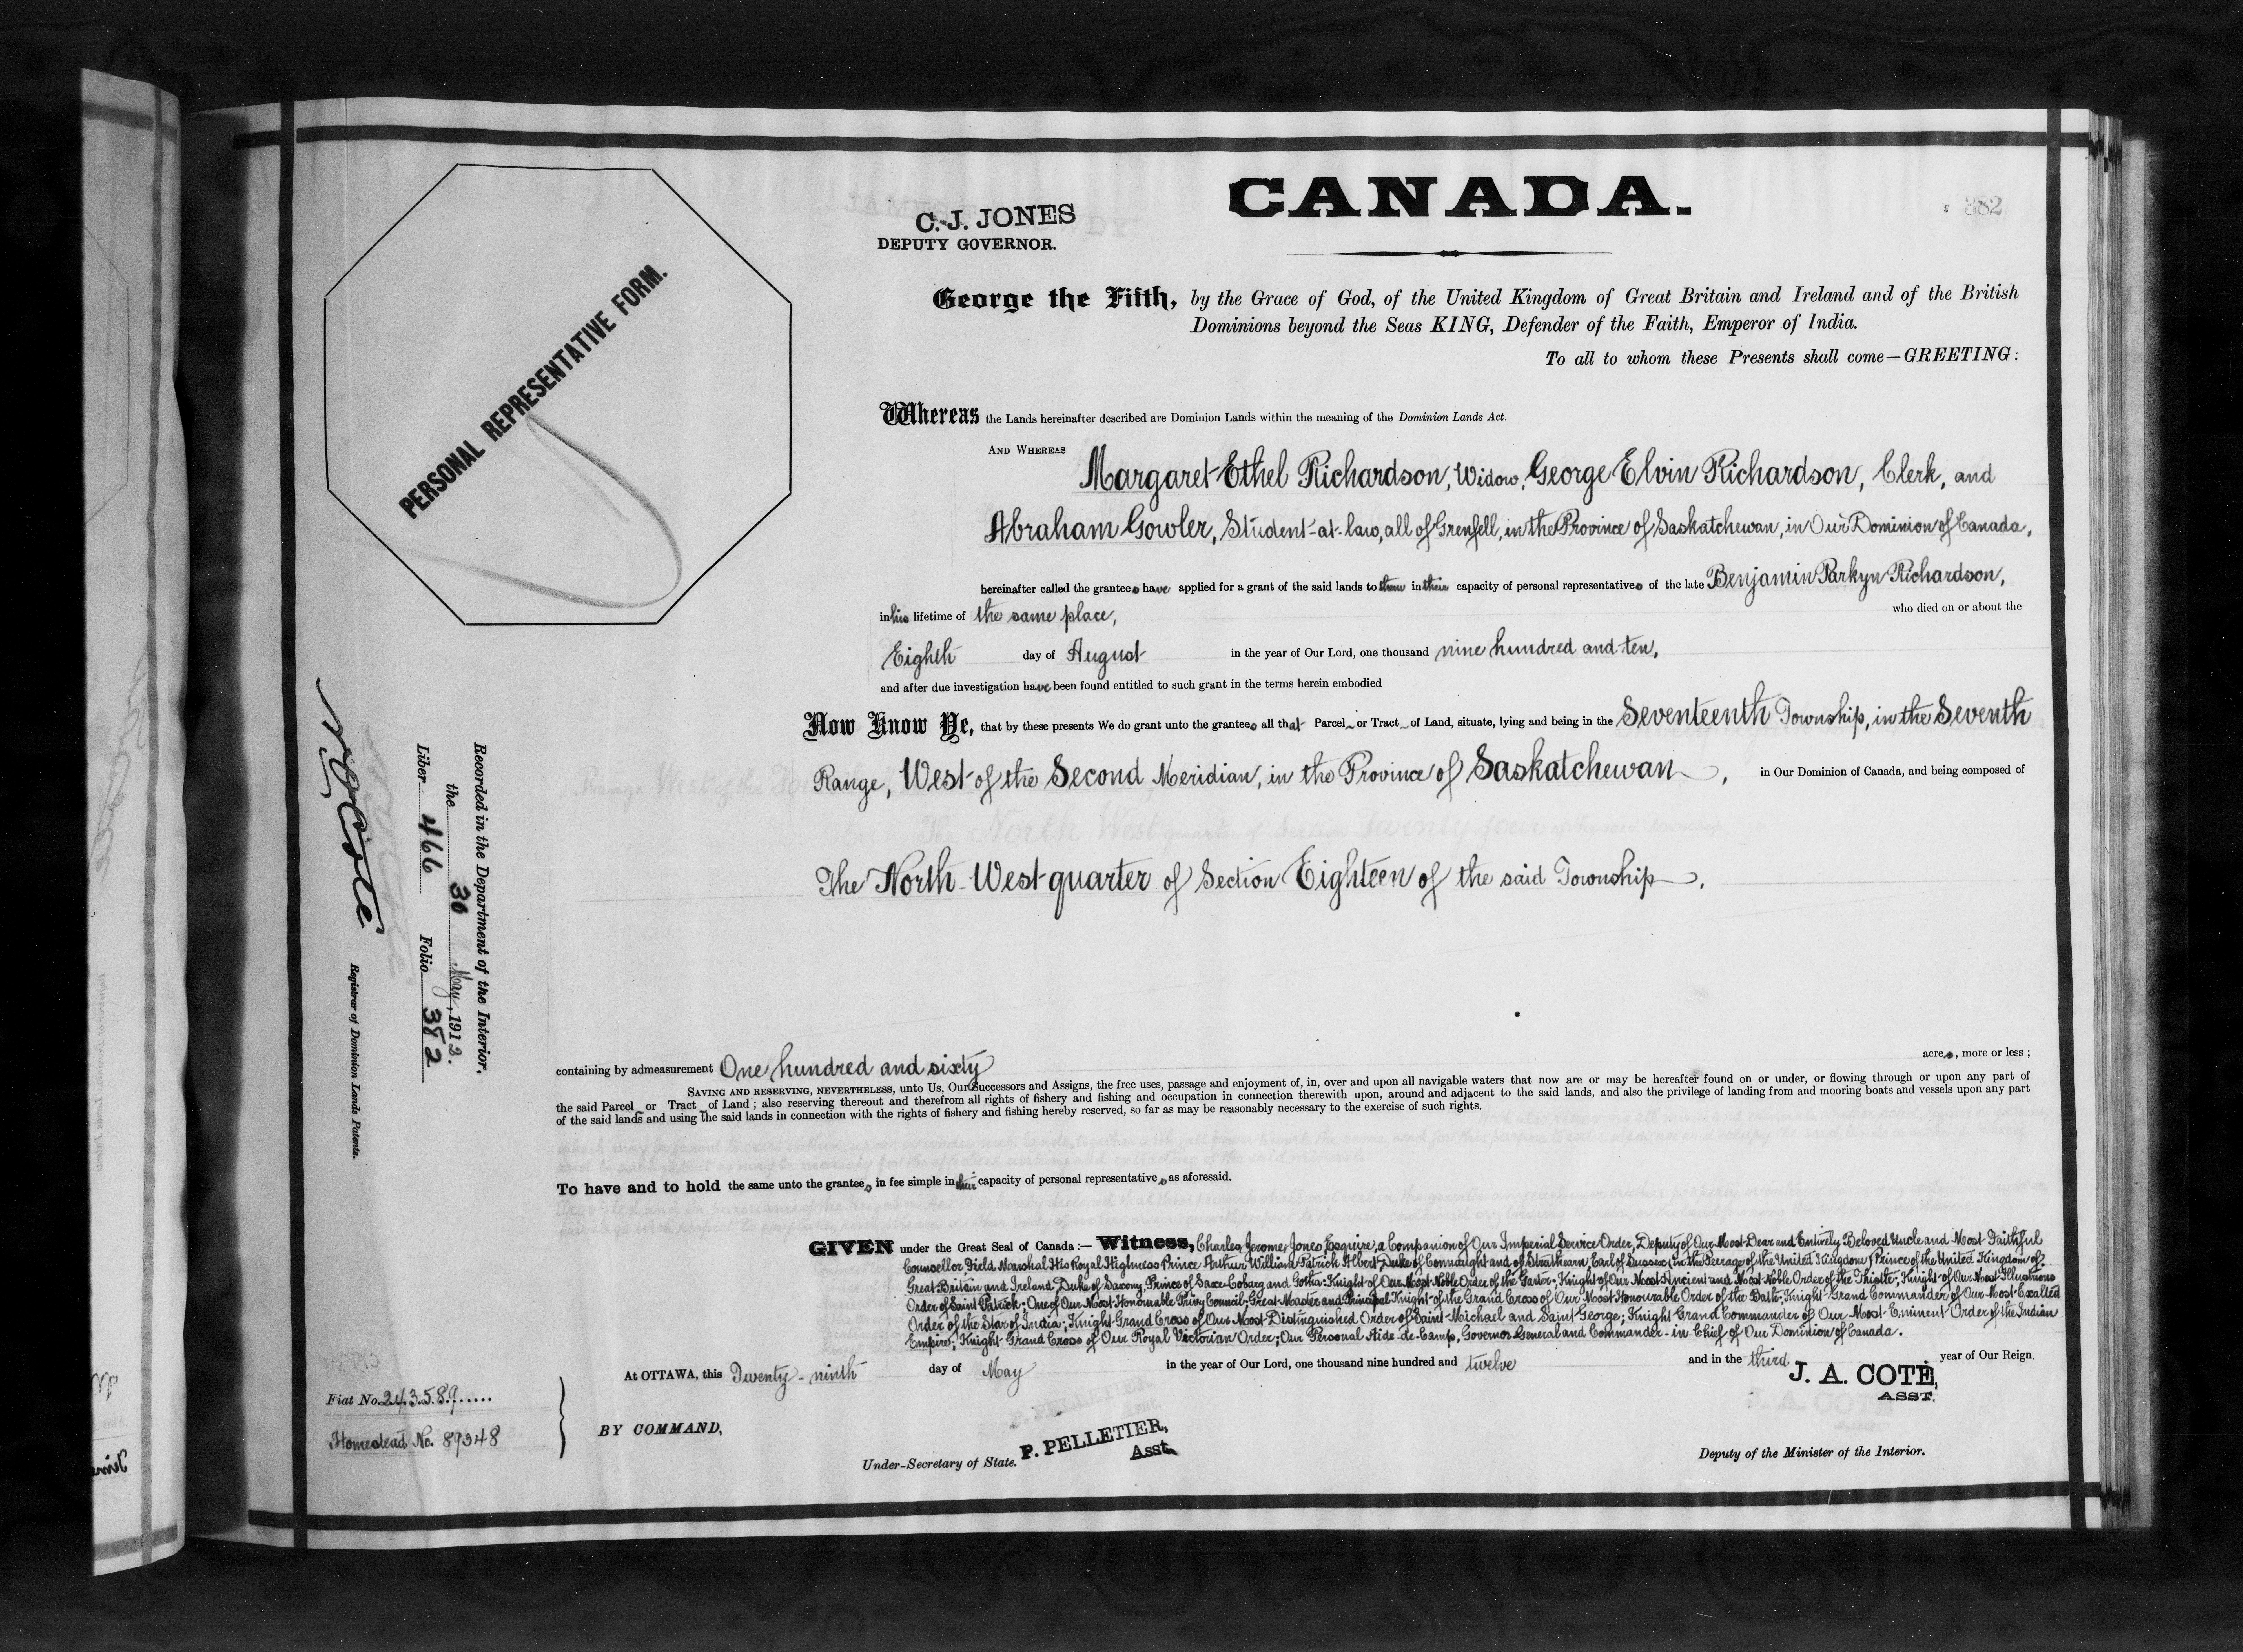 CANADA.
382
C. J. JONES
DEPUTY GOVERNOR.
PERSONAL REPRESENTATIVE FORM.
George the Fifth, by the Grace of God, of the United Kingdom of Great Britain and Ireland and of the British
Dominions beyond the Seas KING, Defender of the Faith, Emperor of India.
To all to whom these Presents shall come—GREETING:
Whereas the Lands hereinafter described are Dominion Lands within the meaning of the Dominion Lands Act.
AND WHEREAS Margaret Ethel Richardson, Widow, George Elvin Richardson, Clerk, and
Abraham Gowler, Student-at-law, all of Grenfell, in the Province of Saskatchewan, in Our Dominion of Canada,
hereinafter called the grantees have applied for a grant of the said lands to them in their capacity of personal representatives of the late Benjamin Parkyn Richardson,
in his lifetime of the same place, who died on or about the
Eighth day of August in the year of Our Lord, one thousand nine hundred and ten,
and after due investigation have been found entitled to such grant in the terms herein embodied
Now Know Ye, that by these presents We do grant unto the grantees all that Parcel or Tract of Land, situate, lying and being in the Seventeenth Township, in the Seventh
Range, West of the Second Meridian, in the Province of Saskatchewan, in Our Dominion of Canada, and being composed of
The North West quarter of Section Eighteen of the said Township.
containing by admeasurement One hundred and sixty acres, more or less;
SAVING AND RESERVING, NEVERTHELESS, unto Us, Our Successors and Assigns, the free uses, passage and enjoyment of, in, over and upon all navigable waters that now are or may be hereafter found on or under, or flowing through or upon any part of
the said Parcel or Tract of Land; also reserving thereout and therefrom all rights of fishery and fishing and occupation in connection therewith upon, around and adjacent to the said lands, and also the privilege of landing from and mooring boats and vessels upon any part
of the said lands and using the said lands in connection with the rights of fishery and fishing hereby reserved, so far as may be reasonably necessary to the exercise of such rights.
To have and to hold the same unto the grantees in fee simple in their capacity of personal representatives as aforesaid.
GIVEN under the Great Seal of Canada:— Witness, Charles Jerome Jones Esquire, a Companion of Our Imperial Service Order, Deputy of Our Most Dear and Entirely Beloved Uncle and Most Faithful
Counsellor, Field Marshal His Royal Highness Prince Arthur William Patrick Albert Duke of Connaught and of Strathearn, Earl of Sussex (in the Peerage of the United Kingdom) Prince of the United Kingdom of
Great Britain and Ireland, Duke of Saxony, Prince of Saxe-Coburg and Gotha; Knight of Our Most Noble Order of the Garter; Knight of Our Most Ancient and Most Noble Order of the Thistle; Knight of Our Most Illustrious
Order of Saint Patrick; One of Our Most Honourable Privy Council; Great Master and Principal Knight of the Grand Cross of Our Most Honourable Order of the Bath; Knight Grand Commander of Our Most Exalted
Order of the Star of India; Knight Grand Cross of Our Most Distinguished Order of Saint Michael and Saint George; Knight Grand Commander of Our Most Eminent Order of the Indian
Empire; Knight Grand Cross of Our Royal Victorian Order; Our Personal Aide-de-Camp, Governor General and Commander-in-Chief of Our Dominion of Canada.
At OTTAWA, this Twenty-ninth day of May in the year of Our Lord, one thousand nine hundred and twelve and in the third year of Our Reign.
J. A. COTÉ,
ASST.
BY COMMAND,
P. PELLETIER,
Asst.
Under-Secretary of State.
Deputy of the Minister of the Interior.
Fiat No. 243589
Homestead No. 89248
Recorded in the Department of the Interior.
the 30 May, 1912.
Liber 466 Folio 382
N. O. Coté
Registrar of Dominion Lands Patents.